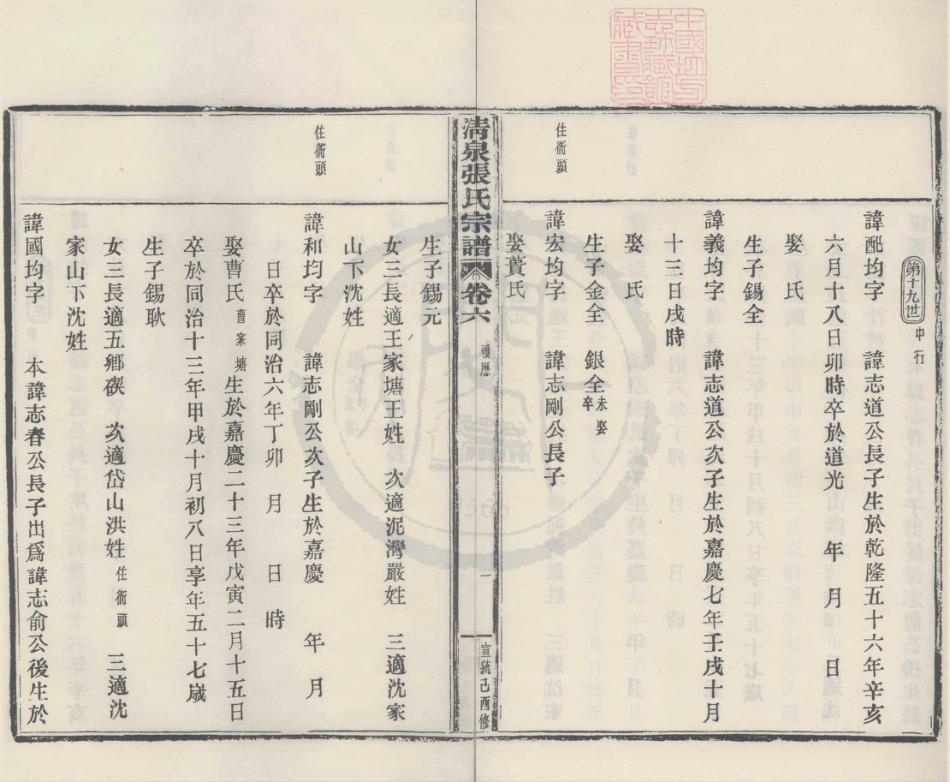 第十九世 中行
諱配均字 諱志道公長子生於乾隆五十六年辛亥
六月十八日卯時卒於道光 年 月 日
娶 氏
生子錫全
諱義均字 諱志道公次子生於嘉慶七年壬戌十月
十三日戌時
娶 氏
生子金全 銀全 未娶卒
住衕頭
諱宏均字 諱志剛公長子
娶黃氏
清泉張氏宗譜 卷六 履歷 一 宣統己酉修
生子錫元
女三長適王家塘王姓 次適泥灣嚴姓 三適沈家
山下沈姓
住衕頭
諱和均字 諱志剛公次子生於嘉慶 年 月
日卒於同治六年丁卯 月 日 時
娶曹氏 曹家塘 生於嘉慶二十三年戊寅二月十五日
卒於同治十三年甲戌十月初八日享年五十七歲
生子錫耿
女三長適五鄉碶 次適岱山洪姓 住衕頭 三適沈
家山下沈姓
諱國均字 本諱志春公長子出爲諱志俞公後生於